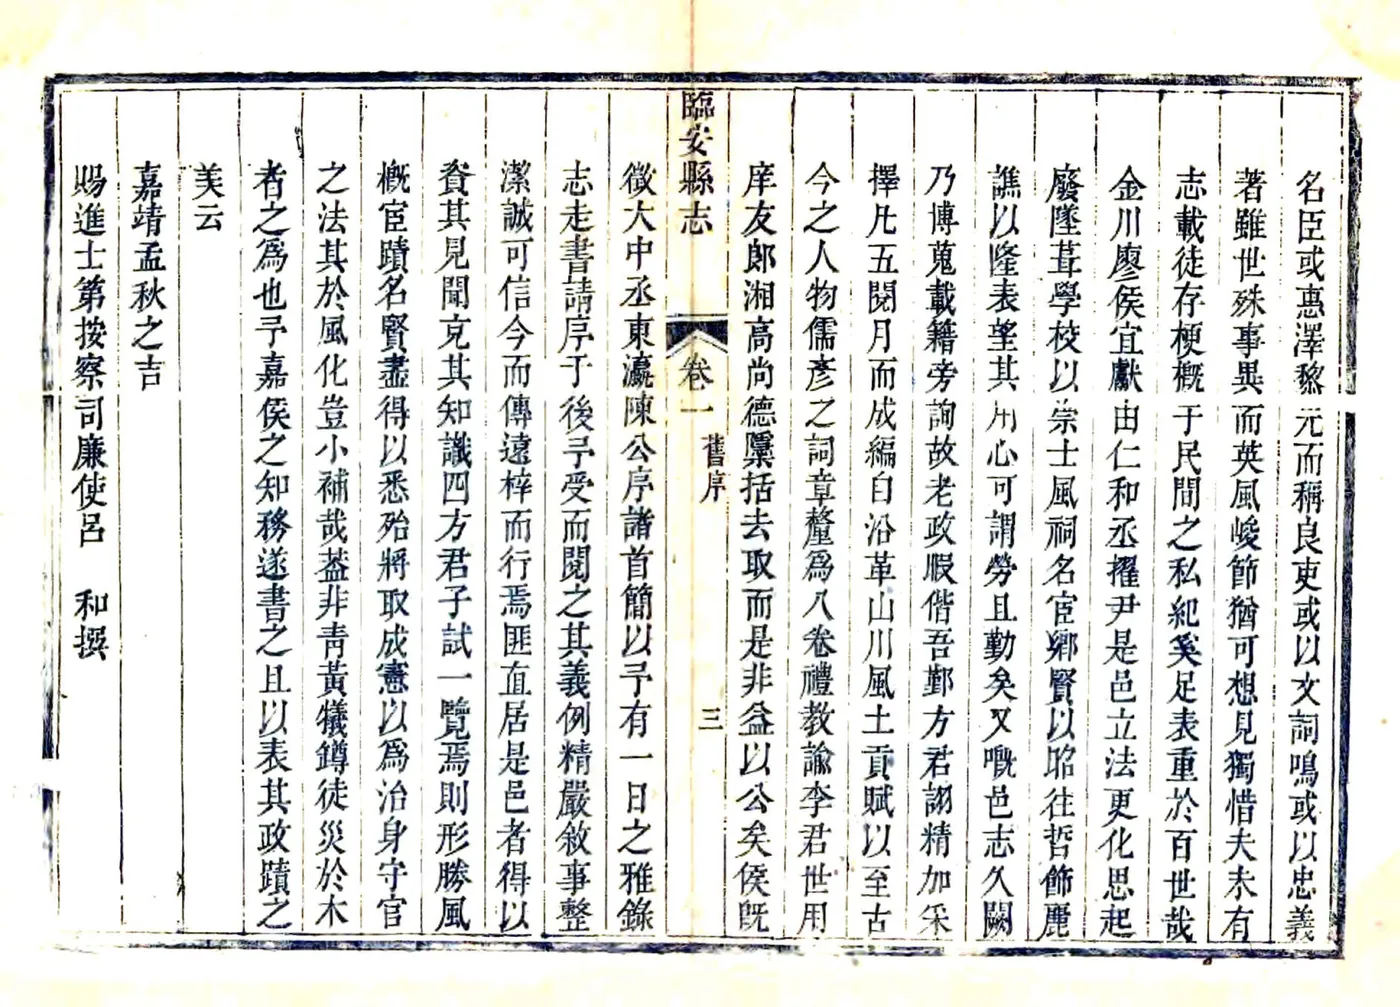 名臣或惠澤黎元而稱良吏或以文詞鳴或以忠義
著雖世殊事異而英風峻節猶可想見獨惜夫未有
志載徒存梗概于民間之私紀奚足表重於百世哉
金川廖侯宜獻由仁和丞擢尹是邑立法更化思起
廢墜葺學校以崇士風祠名宦鄉賢以昭往哲飾麗
譙以隆表望其用心可謂勞且勤矣又嘅邑志久闕
乃博蒐載籍旁詢故老政暇偕吾鄞方君詡精加采
擇凡五閱月而成編自沿革山川風土貢賦以至古
今之人物儒彥之詞章釐為八卷禮教諭李君世用
庠友郞湘高尚德檃括去取而是非益以公矣侯旣
臨安縣志
卷一
舊序
三
徵大中丞東瀛陳公序諸首簡以予有一日之雅錄
志走書請序于後予受而閱之其義例精嚴敘事整
潔誠可信今而傳遠梓而行焉匪直居是邑者得以
資其見聞充其知識四方君子試一覽焉則形勝風
概宦蹟名賢盡得以悉殆將取成憲以爲治身守官
之法其於風化豈小補哉葢非靑黃犧鐏徒災於木
者之爲也予嘉侯之知務遂書之且以表其政蹟之
美云
嘉靖孟秋之吉
賜進士第按察司廉使呂 和撰